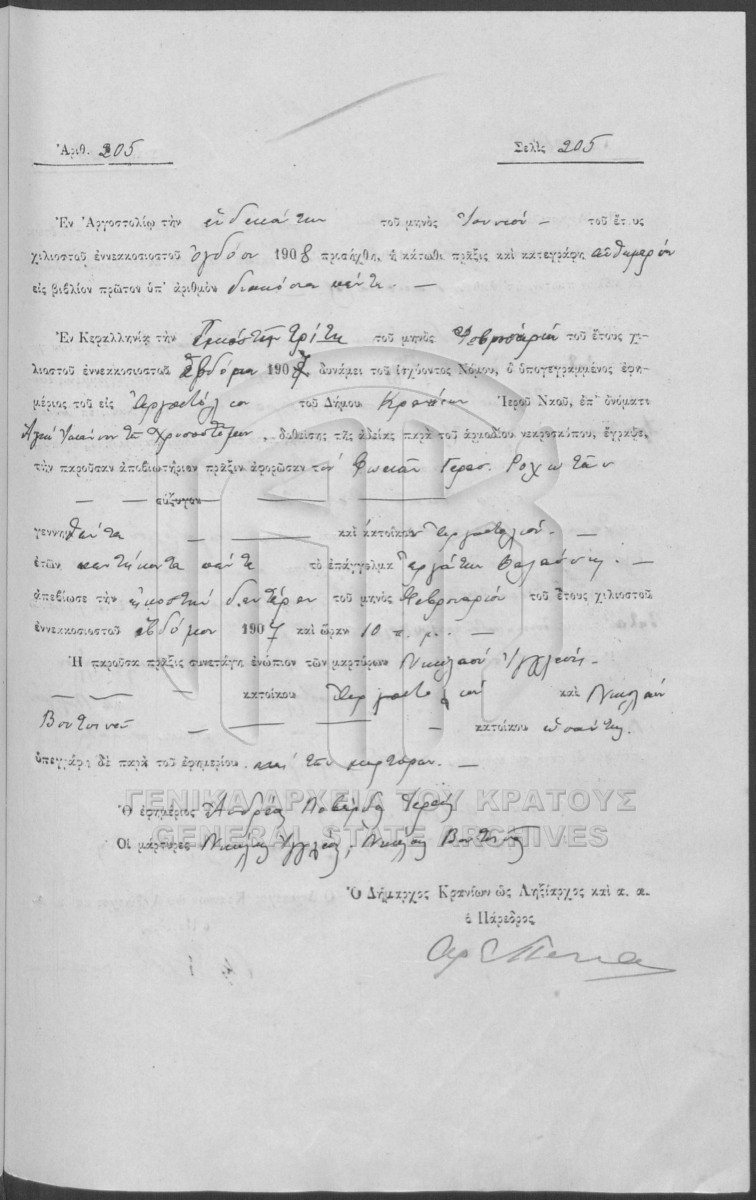 Ἀριθ. 205
Σελὶς 205
Ἐν Ἀργοστολίῳ τὴν ἑνδεκάτην τοῦ μηνὸς Ἰουνίου — τοῦ ἔτους
χιλιοστοῦ ἐννεακοσιοστοῦ ὀγδόου 1908 προσήχθη, ἡ κάτωθι πρᾶξις καὶ κατεγράφη αὐθημερόν
εἰς βιβλίον πρῶτον ὑπ' ἀριθμὸν διακόσια πέντε. —
Ἐν Κεφαλληνίᾳ τὴν εἰκοστὴν τρίτην τοῦ μηνὸς Φεβρουαρίου τοῦ ἔτους χι-
λιοστοῦ ἐννεακοσιοστοῦ ἑβδόμου 1907 δυνάμει τοῦ ἰσχύοντος Νόμου, ὁ ὑπογεγραμμένος ἐφη-
μέριος τοῦ εἰς Ἀργοστόλιον τοῦ Δήμου Κρανίων Ἱεροῦ Ναοῦ, ἐπ' ὀνόματι
Ἁγίου Ἰωάννου τοῦ Χρυσοστόμου, δοθείσης τῆς ἀδείας παρὰ τοῦ ἁρμοδίου νεκροσκόπου, ἔγραψε,
τὴν παροῦσαν ἀποβιωτήριον πρᾶξιν ἀφορῶσαν τὸν Φωκιᾶν Γερασ.
— — σύζυγον — — —
γεννηθέντα — — καὶ κάτοικον Ἀργοστολίου. —
ἐτῶν πεντήκοντα πέντε τὸ ἐπάγγελμα ἐργάτην θαλάσσης. —
ἀπεβίωσε τὴν εἰκοστὴν δευτέραν τοῦ μηνὸς Φεβρουαρίου τοῦ ἔτους χιλιοστοῦ
ἐννεακοσιοστοῦ ἑβδόμου 1907 καὶ ὥραν 10 π. μ. —
Ἡ παροῦσα πρᾶξις συνετάγη ἐνώπιον τῶν μαρτύρων Νικολάου
— — — κατοίκου Ἀργοστολίου καὶ Νικολάου
— — — — κατοίκου ὡσαύτως.
ὑπεγράφη δὲ παρὰ τοῦ ἐφημερίου καὶ τῶν μαρτύρων. —
Ὁ ἐφημέριος Ἀνδρέας Ἱερεύς
Οἱ μάρτυρες Νικόλαος, Νικόλαος
Ὁ Δήμαρχος Κρανίων ὡς Ληξίαρχος καὶ α. α.
ὁ Πάρεδρος
ΓΕΝΙΚΑ ΑΡΧΕΙΑ ΤΟΥ ΚΡΑΤΟΥΣ
GENERAL STATE ARCHIVES